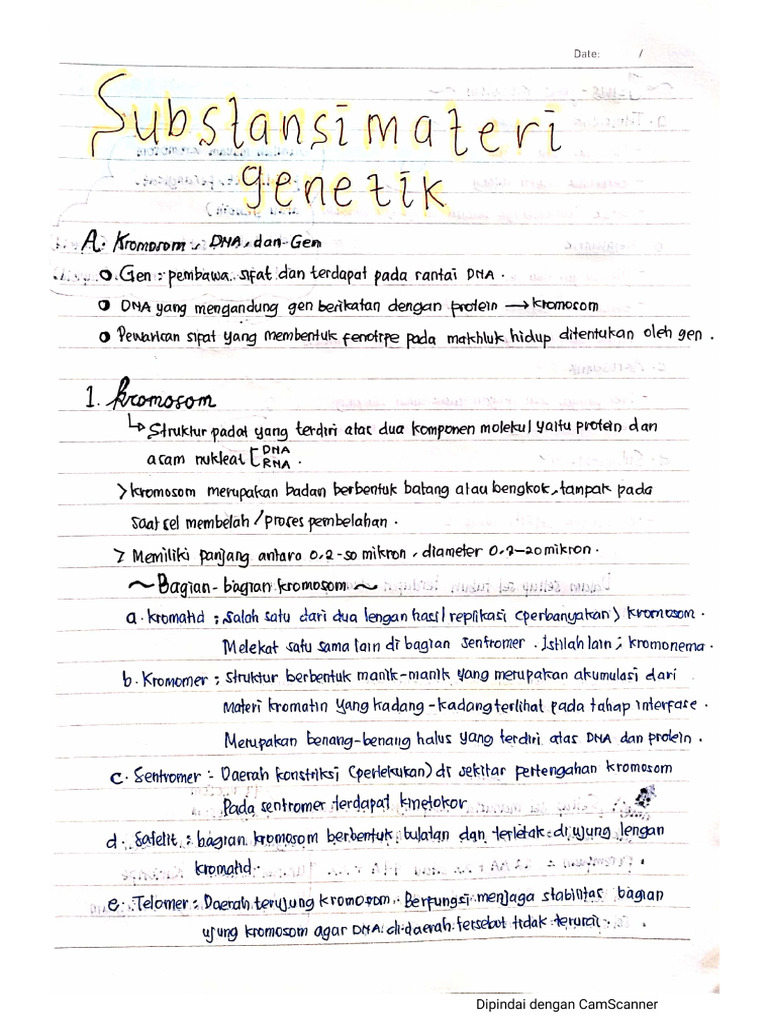 Date: /
Substansi materi
genetik
A. Kromosom, DNA, dan Gen
Gen : pembawa sifat dan terdapat pada rantai DNA.
DNA yang mengandung gen berikatan dengan protein → kromosom
Pewarisan sifat yang membentuk fenotipe pada makhluk hidup ditentukan oleh gen.
1. Kromosom
↳ Struktur padat yang terdiri atas dua komponen molekul yaitu protein dan
asam nukleat [DNA
RNA.
> kromosom merupakan badan berbentuk batang atau bengkok, tampak pada
saat sel membelah / proses pembelahan.
> Memiliki panjang antara 0,2-50 mikron, diameter 0,2-20 mikron.
~ Bagian-bagian kromosom ~
a. kromatid ; salah satu dari dua lengan hasil replikasi (perbanyakan) kromosom.
Melekat satu sama lain di bagian sentromer. Istilah lain ; kromonema.
b. Kromomer ; struktur berbentuk manik-manik yang merupakan akumulasi dari
materi kromatin yang kadang-kadang terlihat pada tahap interfase.
Merupakan benang-benang halus yang terdiri atas DNA dan protein.
c. Sentromer : Daerah konstriksi (perlekukan) di sekitar pertengahan kromosom
Pada sentromer terdapat kinetokor
d. Satelit : bagian kromosom berbentuk bulatan dan terletak di ujung lengan
kromatid.
e. Telomer : Daerah terujung kromosom. Berfungsi menjaga stabilitas bagian
ujung kromosom agar DNA di daerah tersebut tidak terurai.
Dipindai dengan CamScanner